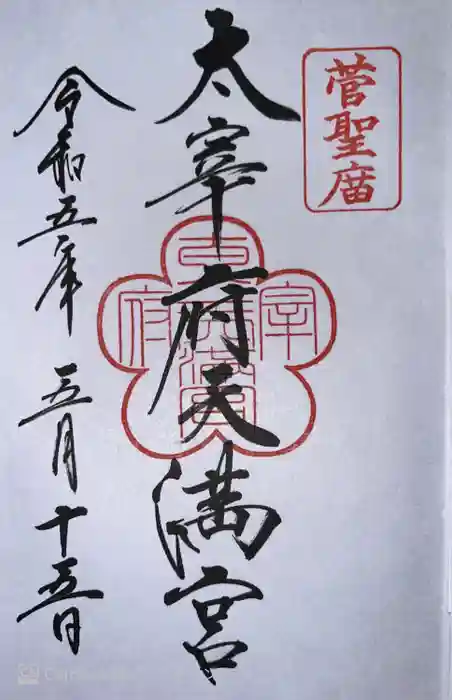 菅聖庿
太宰府天満宮
令和五年 五月十五日